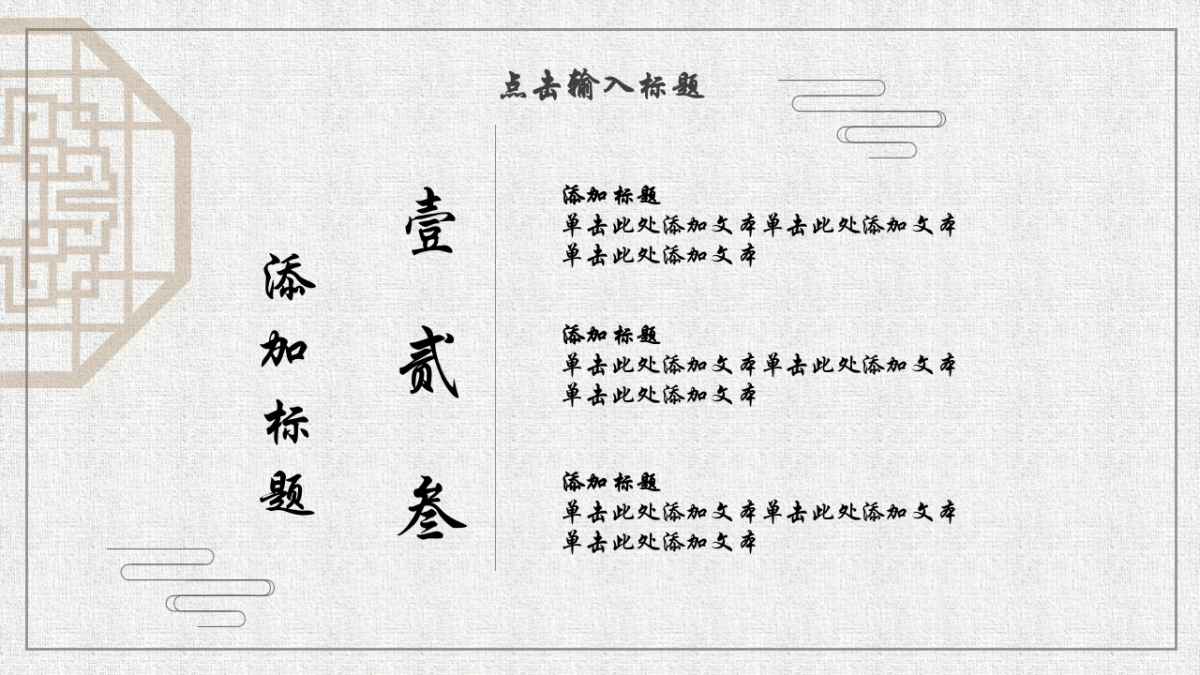 点击输入标题
添加标题
壹
添加标题
单击此处添加文本单击此处添加文本
单击此处添加文本
贰
添加标题
单击此处添加文本单击此处添加文本
单击此处添加文本
叁
添加标题
单击此处添加文本单击此处添加文本
单击此处添加文本